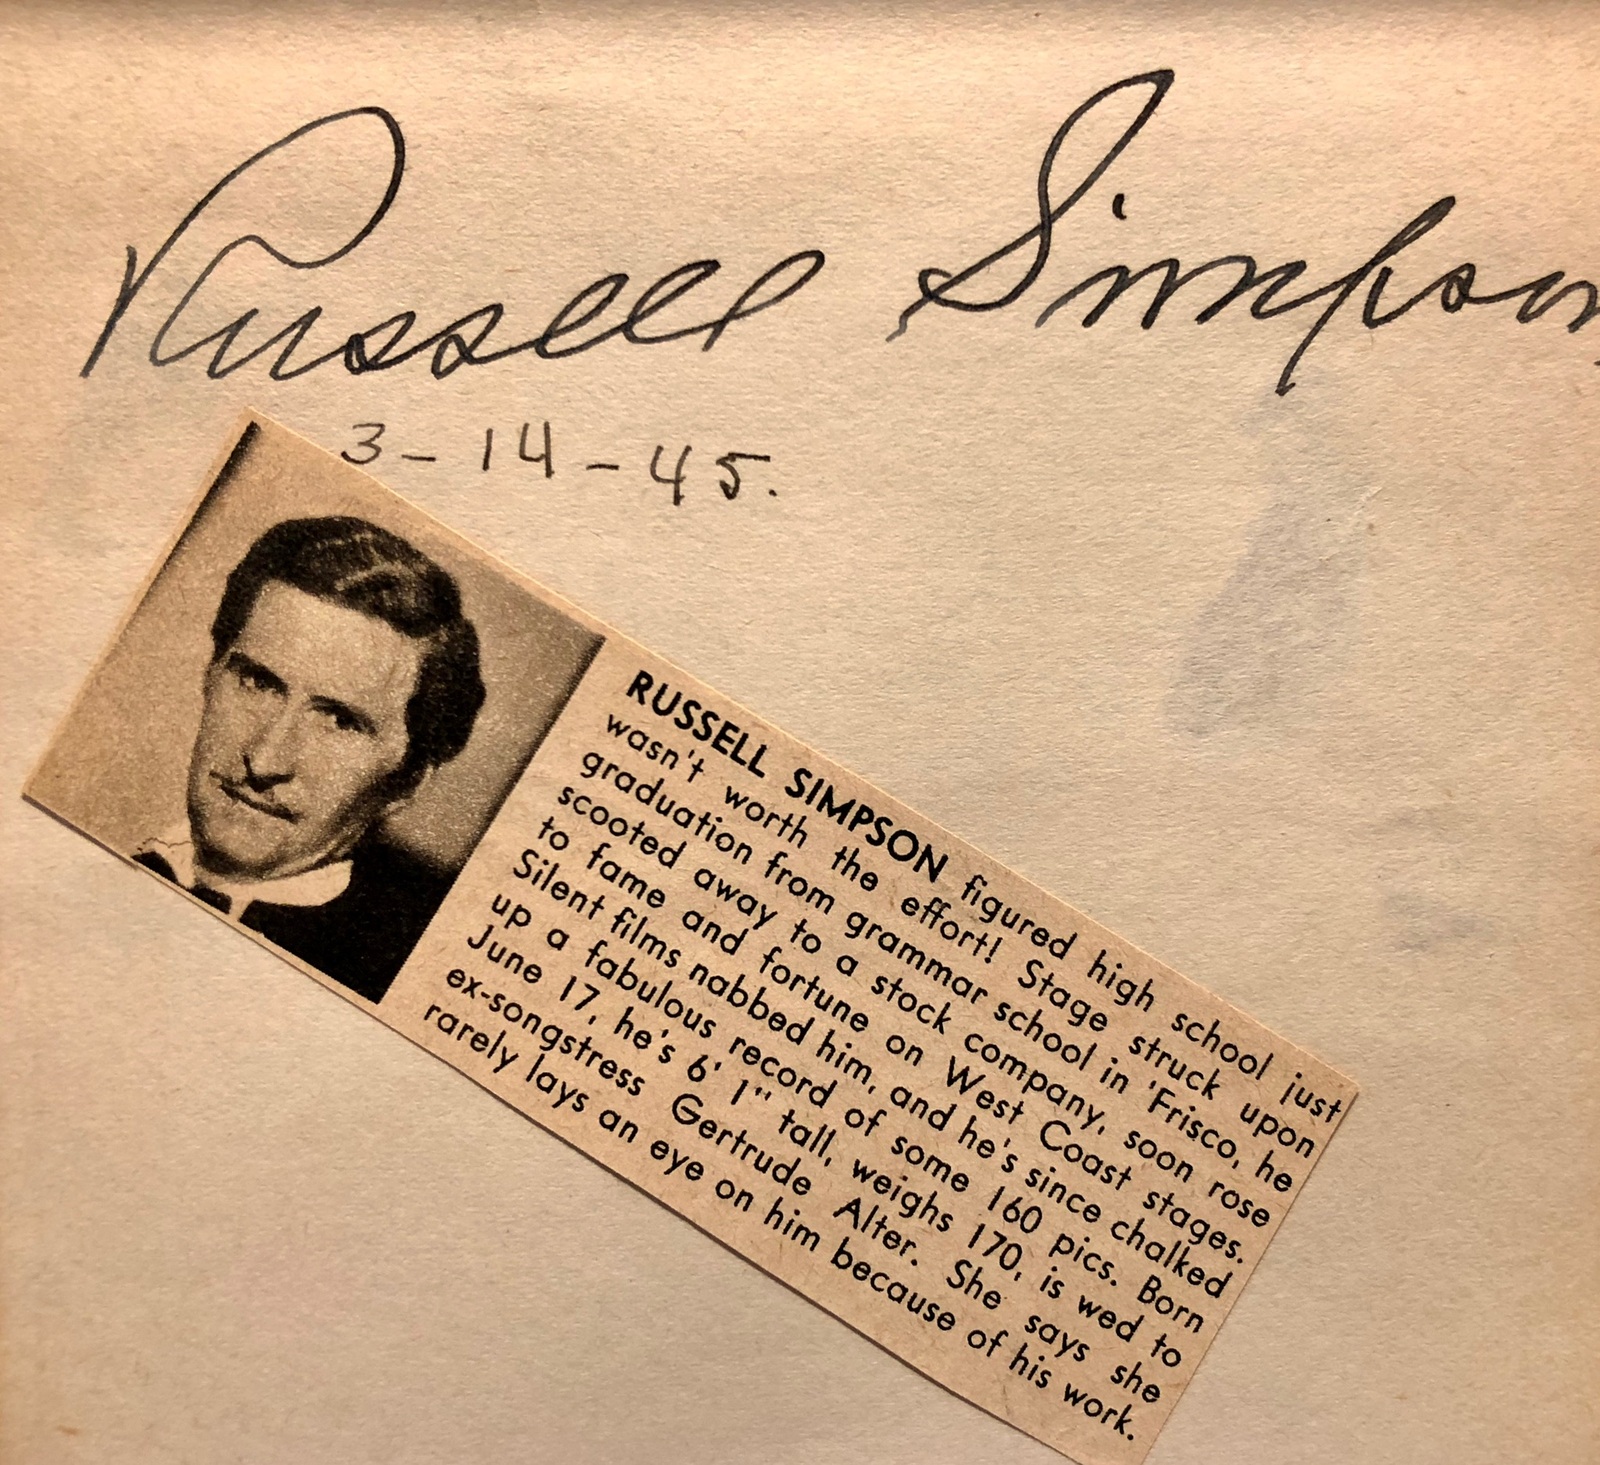 Russell Simpson
3-14-45.
RUSSELL SIMPSON figured high school just
wasn't worth the effort! Stage struck upon
graduation from grammar school in 'Frisco, he
scooted away to a stock company, soon rose
to fame and fortune on West Coast stages.
Silent films nabbed him, and he's since chalked
up a fabulous record of some 160 pics. Born
June 17, he's 6' 1" tall, weighs 170, is wed to
ex-songstress Gertrude Alter. She says she
rarely lays an eye on him because of his work.